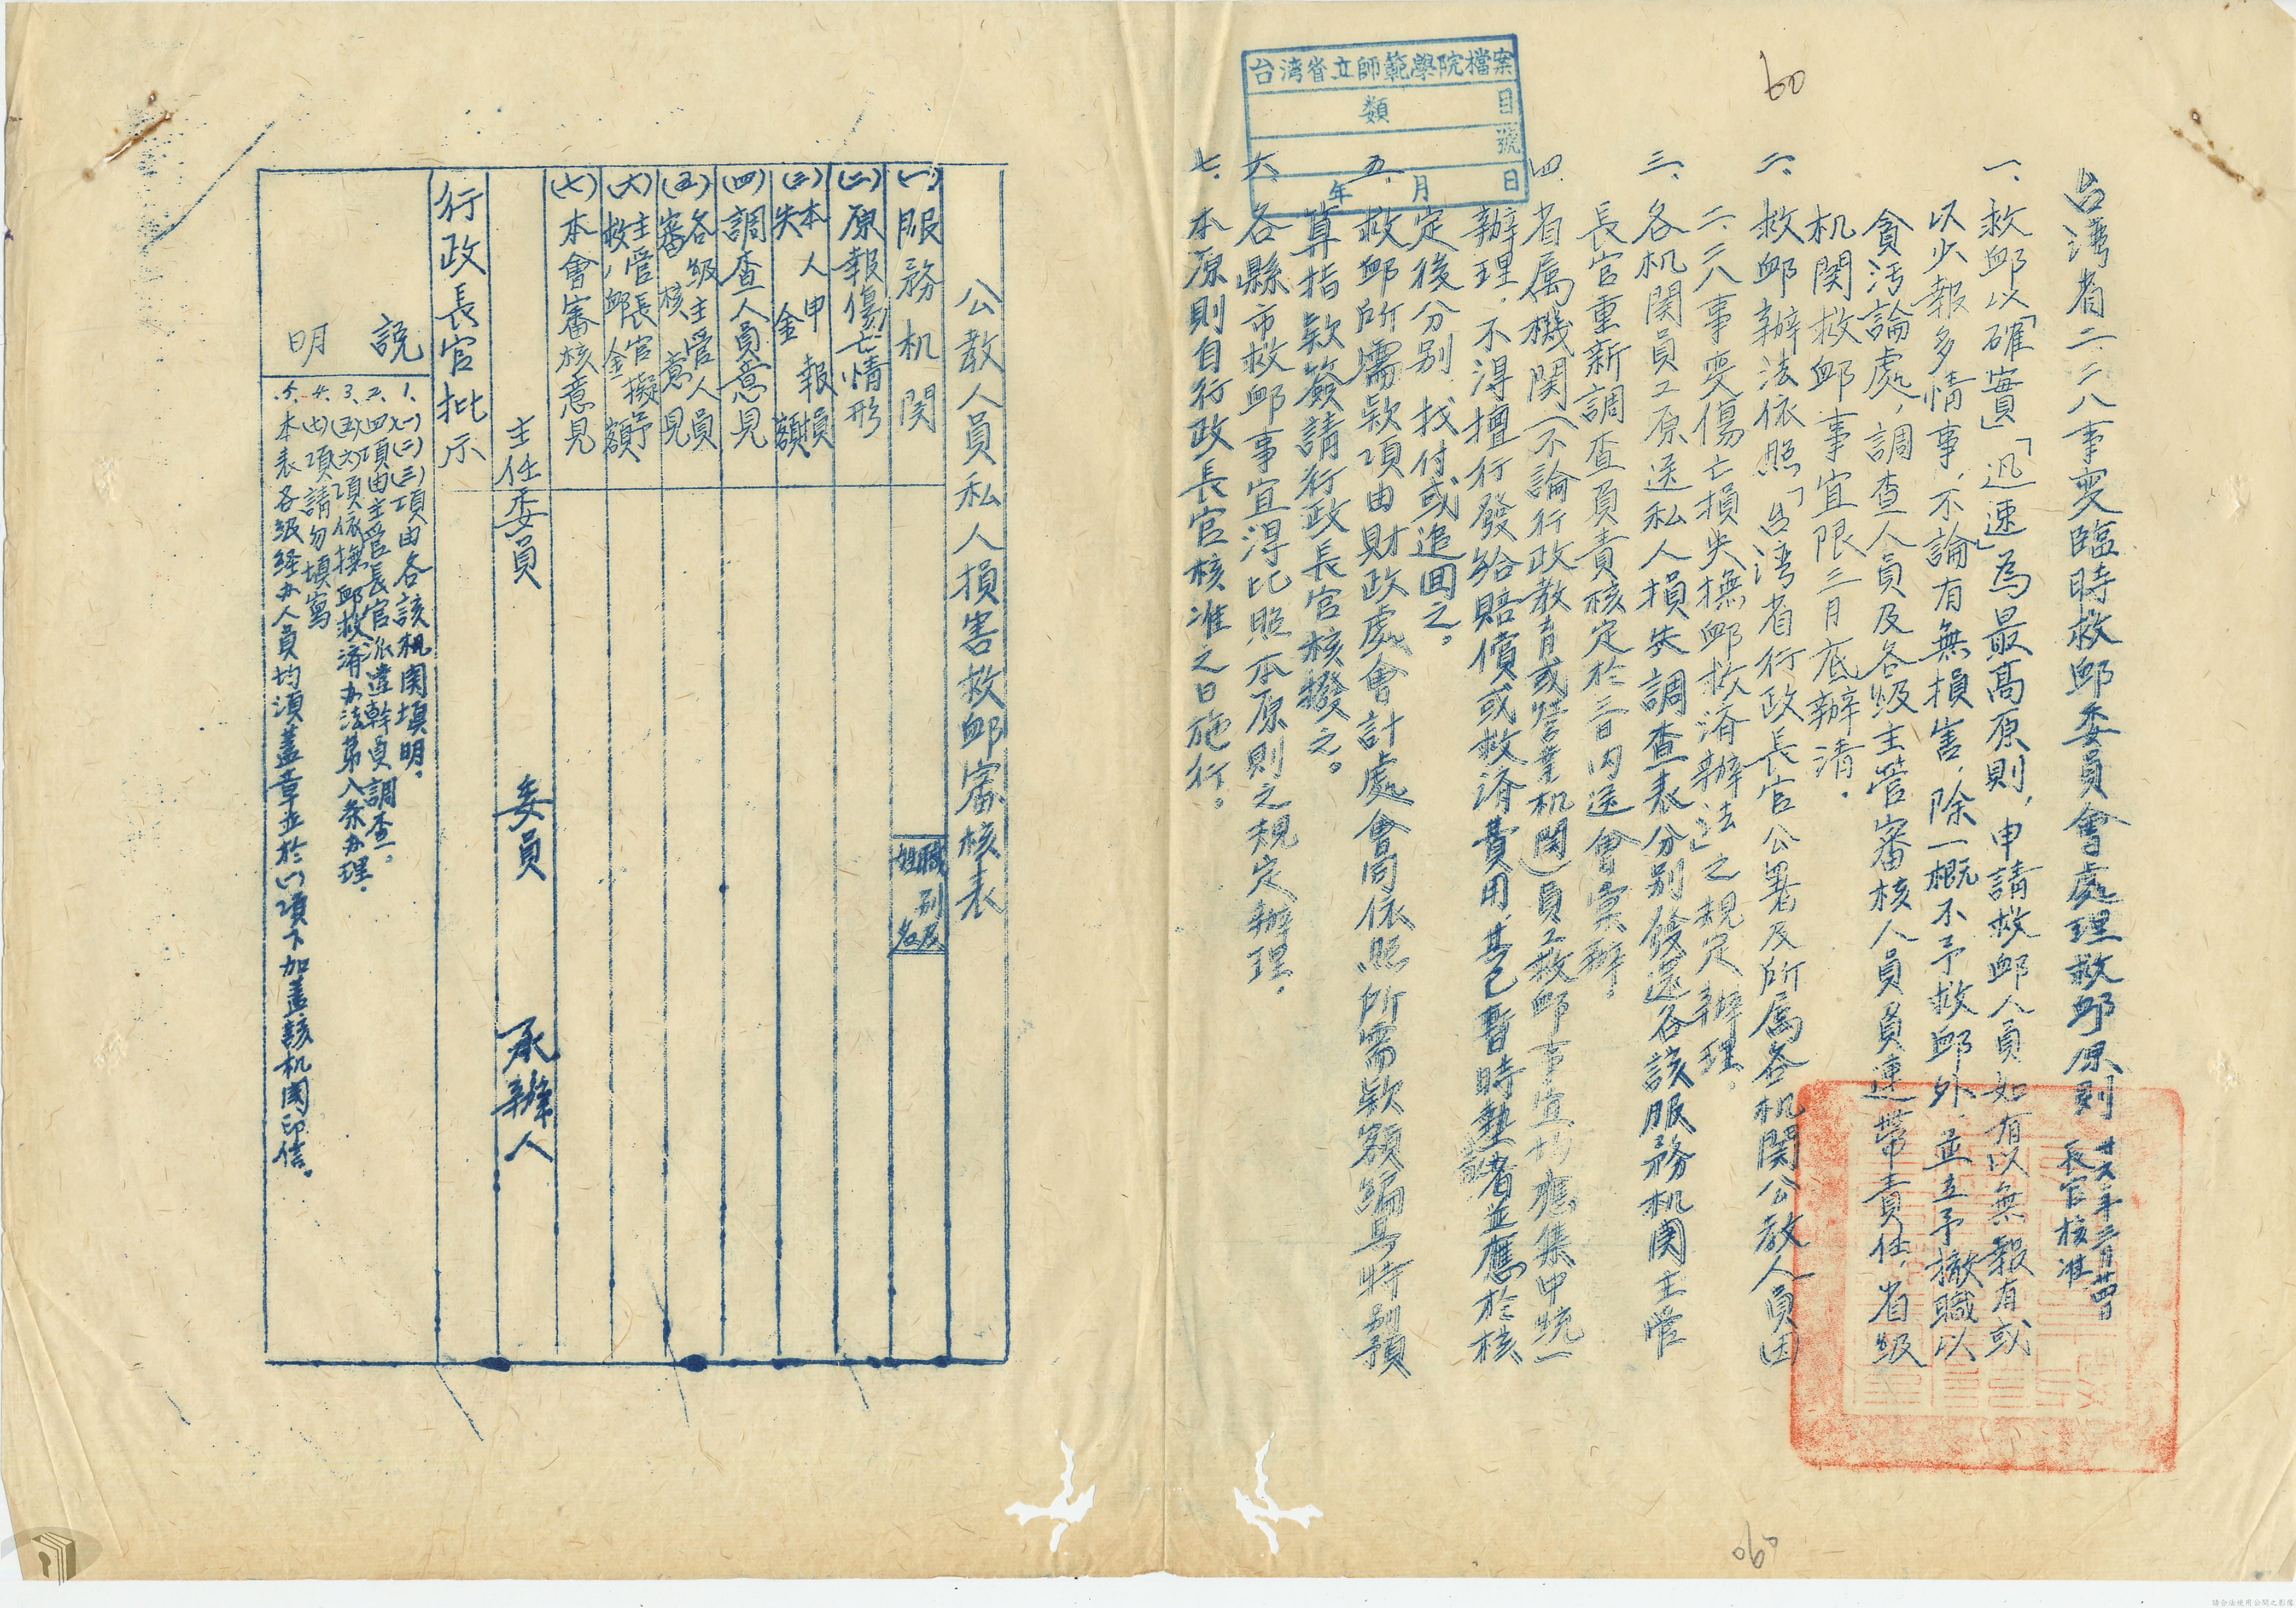 60
台湾省立師範學院檔案
類 目
號
年 月 日
台湾省二二八事变臨時救邺委員會處理救邺原則 卅六年三月廿四日
長官核准
一、救邺以「確實」「迅速」為最高原則，申請救邺人員如有以無報有或
以少報多情事，不論有無損害，除一概不予救邺外，並立予撤職以
貪污論處，調查人員及各級主管審核人員員連帶責任，省級
机関救邺事宜限三月底辦清。
二、救邺辦法依照「台湾省行政長官公署及所属各机関公教人員因
二、二八事变傷亡損失撫邺救济辦法」之規定辦理。
三、各机関員工原送私人損失調查表分別發還各該服務机関主管
長官重新調查員責核定於三日内送會彙辦。
四、省属機関（不論行政教育或营業机関）員工救邺事宜均應集中統一
辦理，不得擅行發給賠償或救济費用，其已暫時墊者並應於核
定後分別找付或追回之。
五、救邺所需款項由財政處會計處會同依照所需款額編具特別預
算指款簽請行政長官核撥之。
六、各縣市救邺事宜得比照本原則之規定辦理。
七、本原則自行政長官核准之日施行。
公教人員私人損害救邺審核表
(一)服務机関
職別及姓名
(二)原報傷亡情形
(三)本人申報損失金額
(四)調查人員意見
(五)各級主管人員審核意見
(六)主管長官擬予救邺金額
(七)本會審核意見
主任委員 委員 承辦人
行政長官批示
說明
1.(一)(二)(三)項由各該机関填明。
2.(四)項由主管長官派遣幹員調查。
3.(五)(六)項依撫邺救济办法第八条办理。
4.(七)項請勿填寫
5.本表各級经办人員均須蓋章並於(一)項下加蓋該机関印信。
060
請合法使用公開之影像